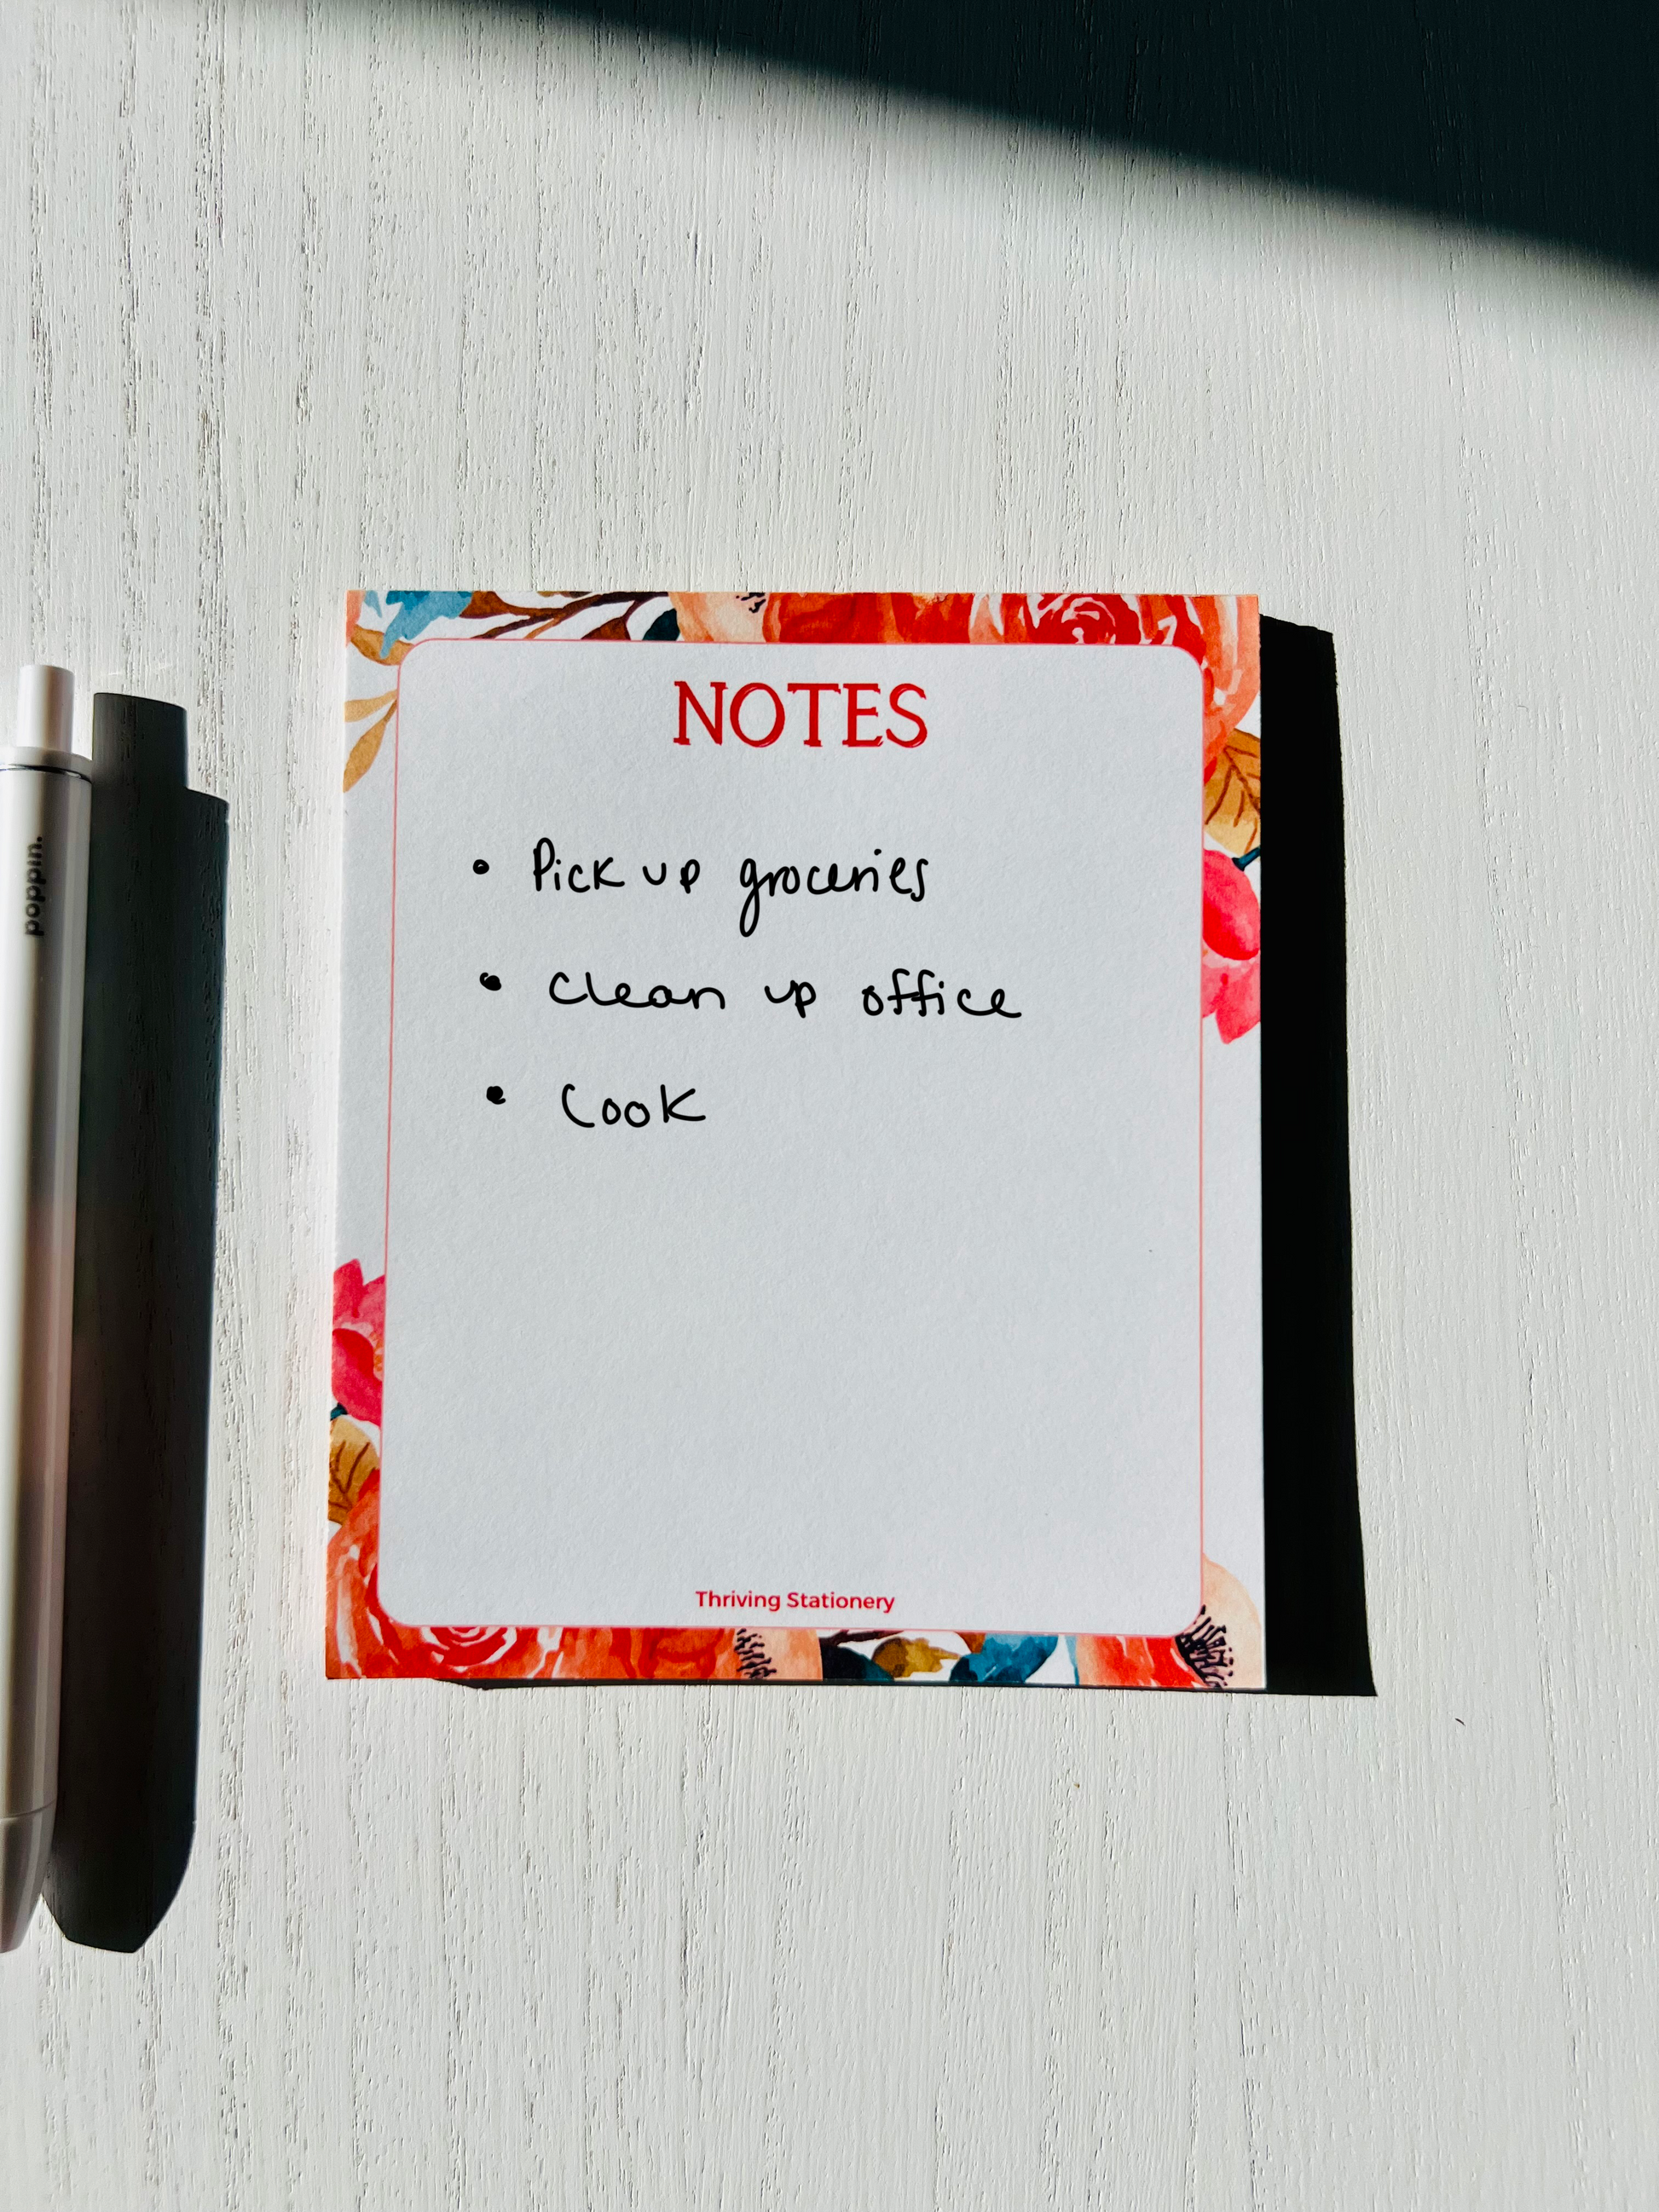 poppin.
NOTES
• Pick up groceries
• Clean up office
• Cook
Thriving Stationery